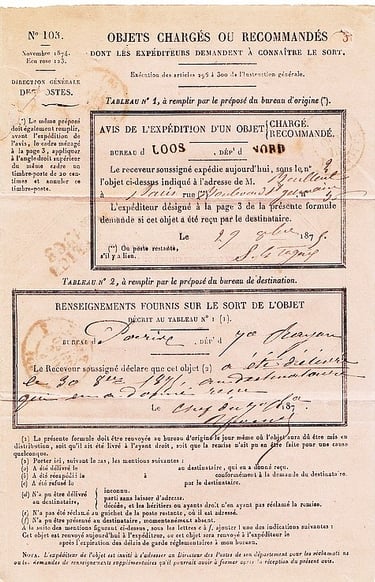 Nº 103.
Novembre 1874.
Eau rose 123.
DIRECTION GÉNÉRALE
DES POSTES.
OBJETS CHARGÉS OU RECOMMANDÉS
DONT LES EXPÉDITEURS DEMANDENT À CONNAÎTRE LE SORT.
Exécution des articles 295 à 300 de l'Instruction générale.
TABLEAU Nº 1, à remplir par le préposé du bureau d'origine (*).
(*) Le même préposé
doit également remplir,
avant l'expédition de
l'avis, le cadre ménagé
à la page 3, appliquer
à l'angle droit supérieur
du même cadre un
timbre-poste de 20 centimes et annuler ce
timbre-poste.
AVIS DE L'EXPÉDITION D'UN OBJET { CHARGÉ.
RECOMMANDÉ.
BUREAU d LOOS , DÉPt d NORD
Le receveur soussigné expédie aujourd'hui, sous le nº
l'objet ci-dessus indiqué à l'adresse de M.
à Paris rue (**)
L'expéditeur désigné à la page 3 de la présente formule
demande si cet objet a été reçu par le destinataire.
Le 29 8bre 1875.
(**) Ou poste restante,
s'il y a lieu.
TABLEAU Nº 2, à remplir par le préposé du bureau de destination.
RENSEIGNEMENTS FOURNIS SUR LE SORT DE L'OBJET
DÉCRIT AU TABLEAU Nº 1 (1).
BUREAU d , DÉPt d
Le Receveur soussigné déclare que cet objet (2) a été délivré
le 30 8bre 1875, au destinataire
qui en a donné reçu
Le 187
(1) La présente formule doit être renvoyée au bureau d'origine le jour même où l'objet aura dû être mis en
distribution, soit qu'il ait été livré à l'ayant droit, soit que la remise n'ait pu en être faite pour une cause
quelconque.
(2) Porter ici, suivant le cas, les mentions suivantes :
a) A été délivré le au destinataire, qui en a donné reçu.
b) A été réexpédié le à conformément à la demande du destinataire.
c) A été refusé le par le destinataire.
d) N'a pu être délivré
au destinataire, { inconnu.
parti sans laisser d'adresse.
décédé, et les héritiers ou ayants droit n'en ayant pas réclamé la remise.
e) N'a pas été réclamé au guichet de la poste restante, où il est adressé.
f) N'a pu être présenté au destinataire, momentanément absent.
A la suite des mentions figurant ci-dessus, sous les lettres c à f, ajouter l'une des indications suivantes :
Cet objet est renvoyé aujourd'hui à l'expéditeur, ou Cet objet sera renvoyé à l'expéditeur le
après l'expiration des délais de garde réglementaires à mon bureau.
NOTA. L'expéditeur de l'objet est invité à s'adresser au Directeur des Postes de son département pour les réclamations ou les demandes de renseignements supplémentaires qu'il pourrait avoir à former après la réception du présent avis.